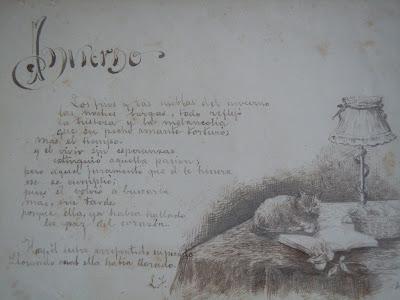 Invierno
Los fríos y las nieblas del invierno
las noches largas, todo reflejó
la tristeza y la melancolía
que su pecho amante torturó;
mas el tiempo
y el vivir sin esperanzas
extinguió aquella pasión;
pero aquel juramento que él le hiciera
ese se cumplió;
pues él volvió a buscarla
mas, era tarde
porque ella, ya había hallado
la paz del corazón.
Hoy, él entra arrepentido
Llorando cual ella había llorado.